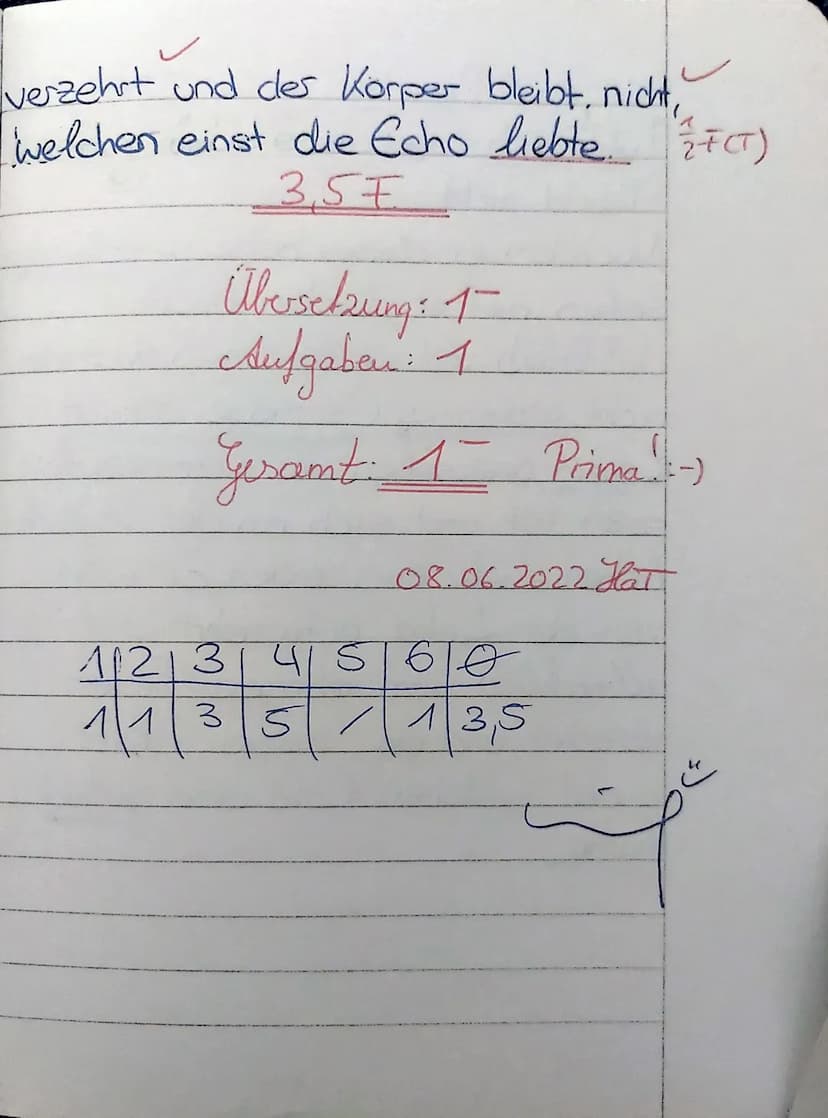 verzehrt und der Körper bleibt nicht,
welchen einst die Echo liebte. ½ F (T)
3,5 F
Übersetzung: 1-
Aufgaben: 1
Gesamt: 1- Prima! :-)
08.06.2022 HaT
1 2 3 4 5 6 Ø
1 1 3 5 / 1 3,5